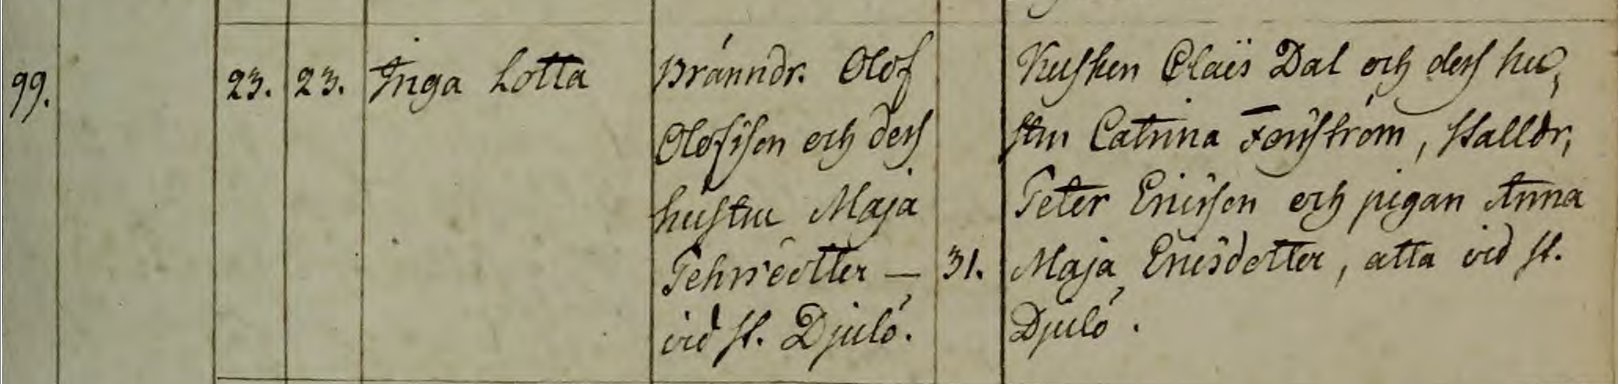 99.
23. 23. Inga Lotta
Bränndr. Olof
Olofsson och dess
hustru Maja
Pehrsdotter —
vid st. Djulö.
31.
Kusken Claës Dal och dess hu,
stru Catrina Forsström, Stalldr,
Peter Ericsson och pigan Anna
Maja Ericsdotter, alla vid st.
Djulö.